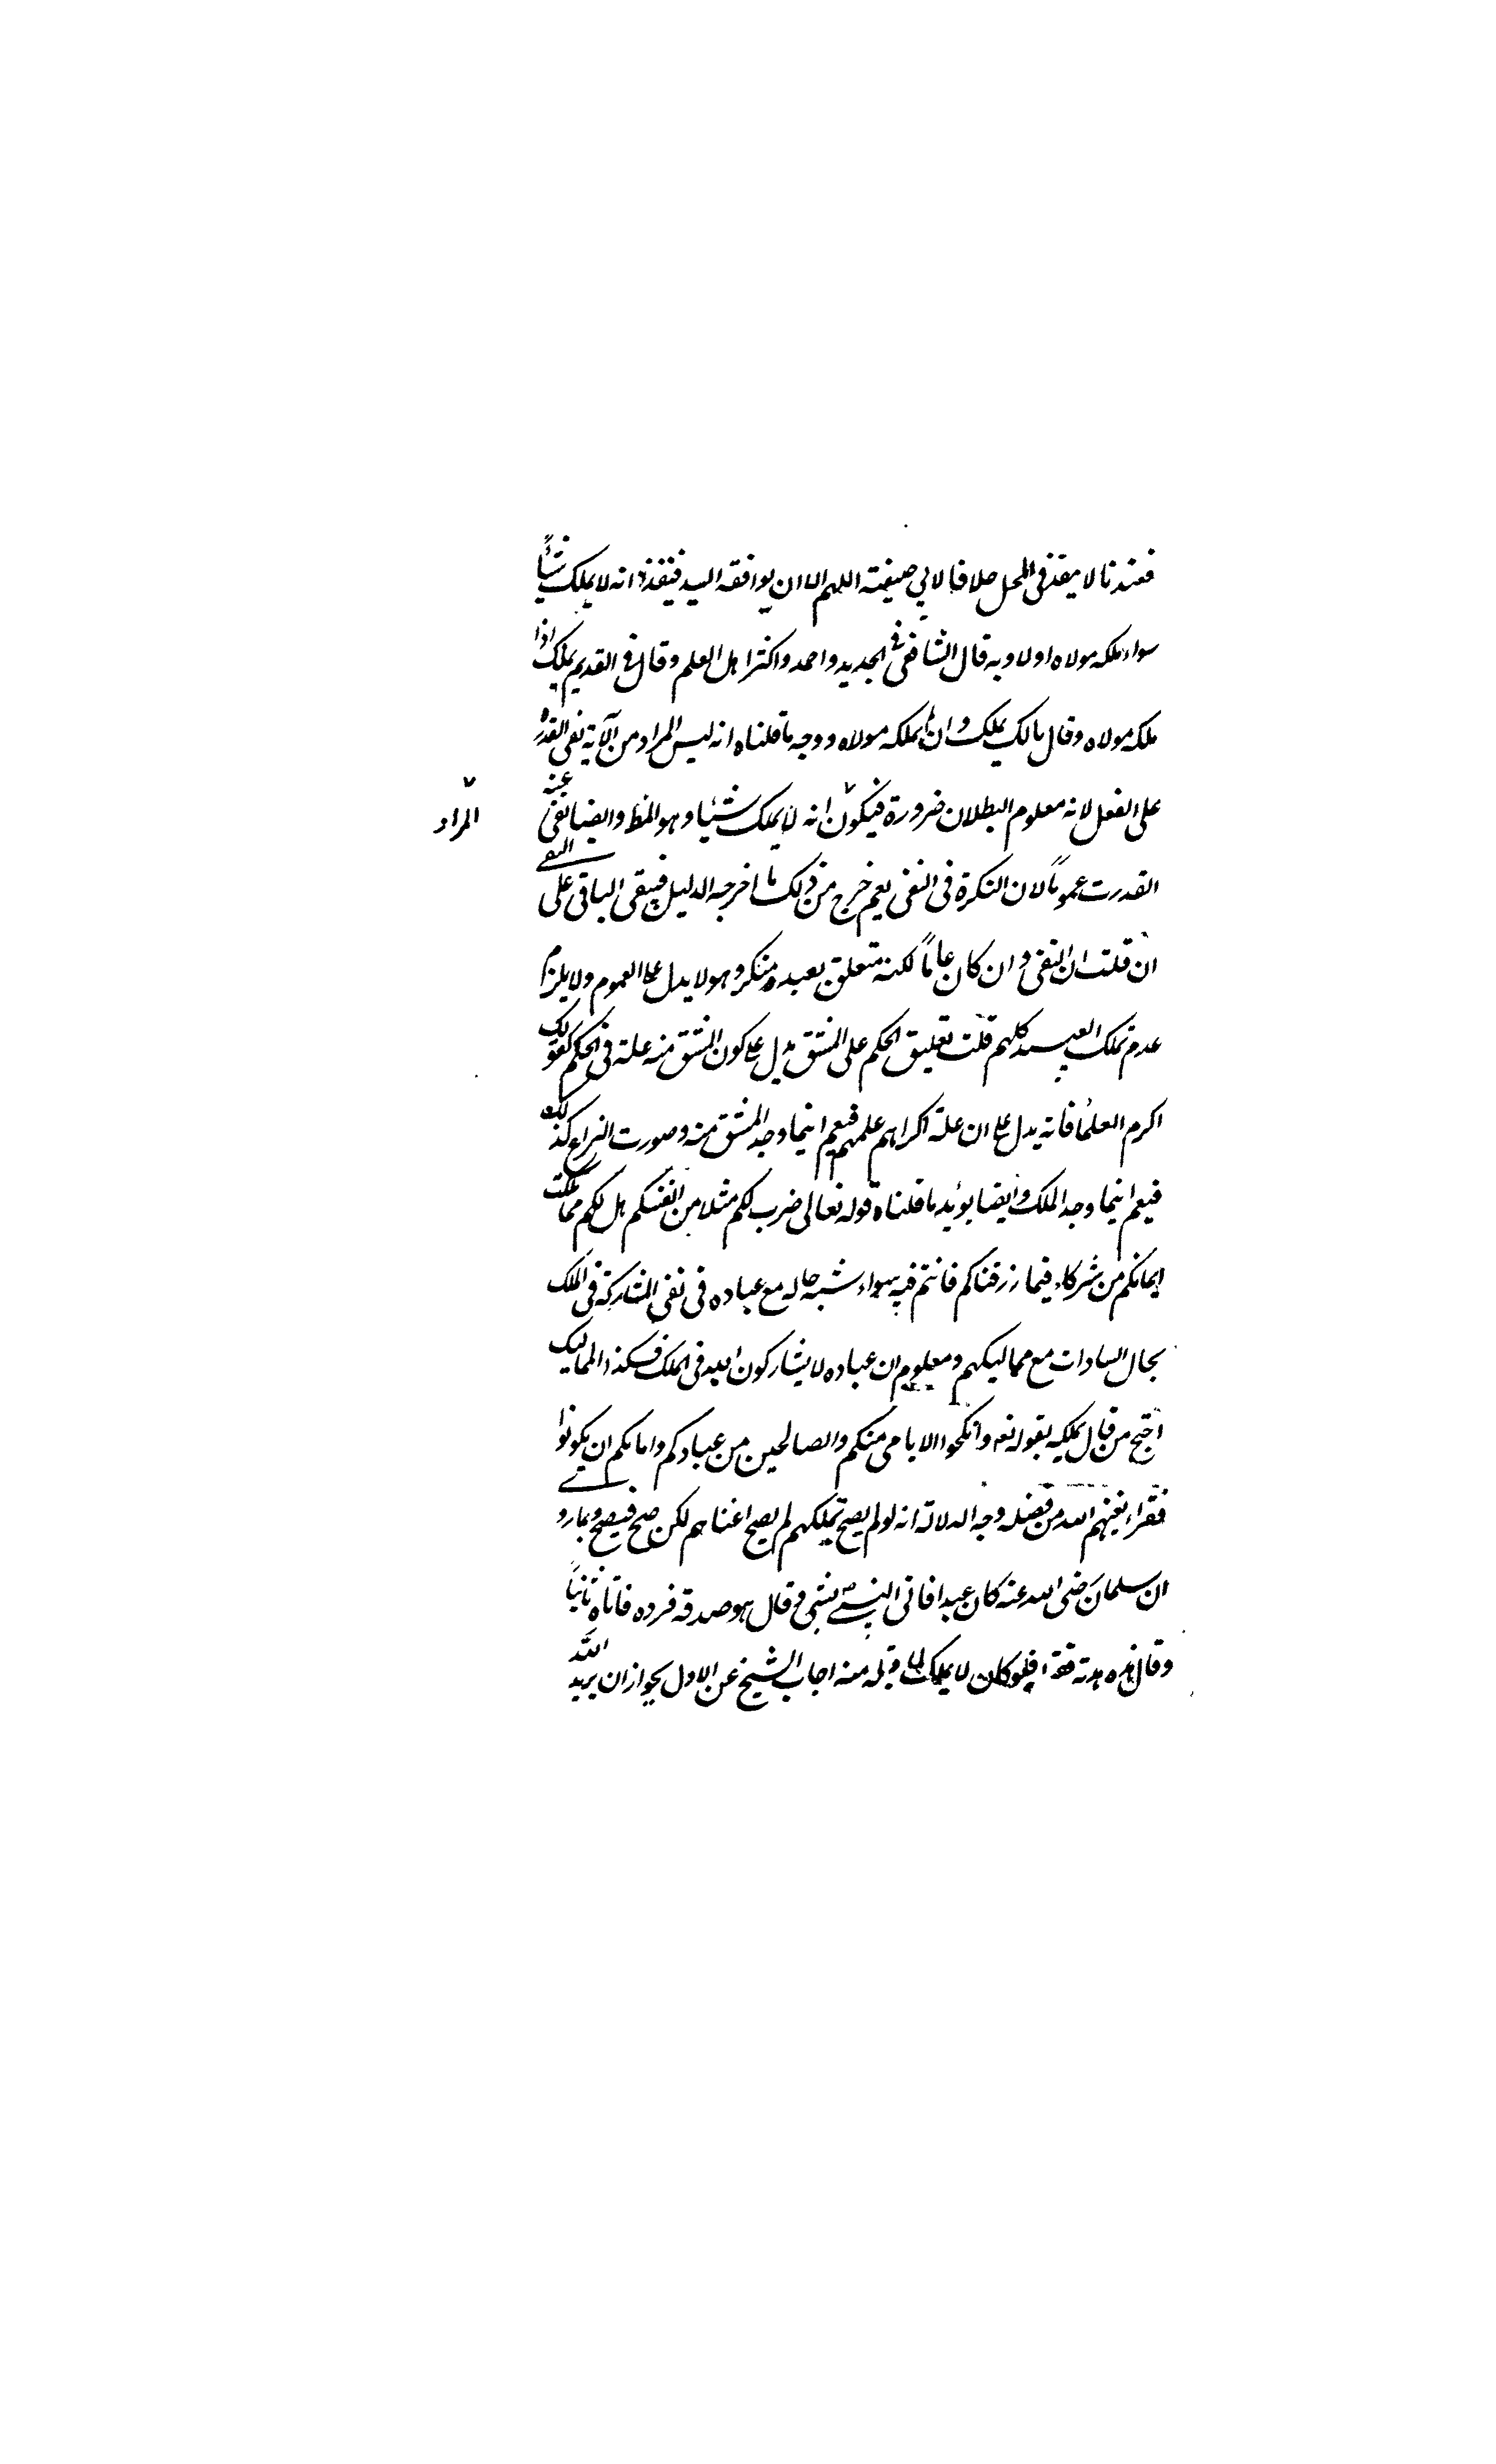 فعندنا لا ينفذ فى المحل خلافا لابي حنيفة اللهم الا ان يوافقه السيد فينفذ د انه لا يملك شيئاً
سواء ملكه مولاه او لا وبه قال الشافعى فى الجديد واحمد واكثر اهل العلم وقال فى القديم يملك اذا
ملكه مولاه وقال مالك يملك وان لم يملكه مولاه ووجه ما قلناه انه ليس المراد من الآية نفى القدرة
على الفعل لانه معلوم البطلان ضرورة فيكون انه لا يملك شيئا وهو المط وايضا نفى عنه
المراد
القدرت عموماً لان النكرة فى النفى يعم خرج من ذلك ما اخرجه الدليل فيبقى الباقى على النفى
ان قلت ان النفى وان كان عاماً لكنه متعلق بعبد منكر وهو لا يدل على العموم ولا يلزم
عدم تملك العبيد كلهم قلت تعليق الحكم على المشتق يدل على كون المشتق منه علة فى الحكم كقولك
اكرم العلماء فانه يدل على ان علة اكرامهم علمهم فيعم اينما وجد المشتق منه وصورت النزاع كذلك
فيعم اينما وجد الملك وايضا يؤيد ما قلناه قوله تعالى ضرب لكم مثلا من انفسكم هل لكم مما ملكت
ايمانكم من شركاء فيما رزقناكم فانتم فيه سواء شبه حاله مع عباده فى نفى المشاركة فى الملك
بحال السادات مع مماليكهم ومعلوم ان عباده لا يشاركون الله فى الملك فكذا المماليك
احتج من قال بملكيه بقوله تعه وانكحوا الايامى منكم والصالحين من عبادكم وامائكم ان يكونوا
فقراء يغنيهم الله من فضله وجه الدلالة انه لو لم يصح تملكهم لم يصح اغناهم لكن صح فيصح وبما روي
ان سلمان رضى الله عنه كان عبدا فاتى النبي ص بشىء وقال هو صدقة فرده فاتاه ثانياً
وقال هذه هدية فقبله فلو كان لا يملك لما قبله منه اجاب الشيخ عن الاول بجواز ان يريد الله